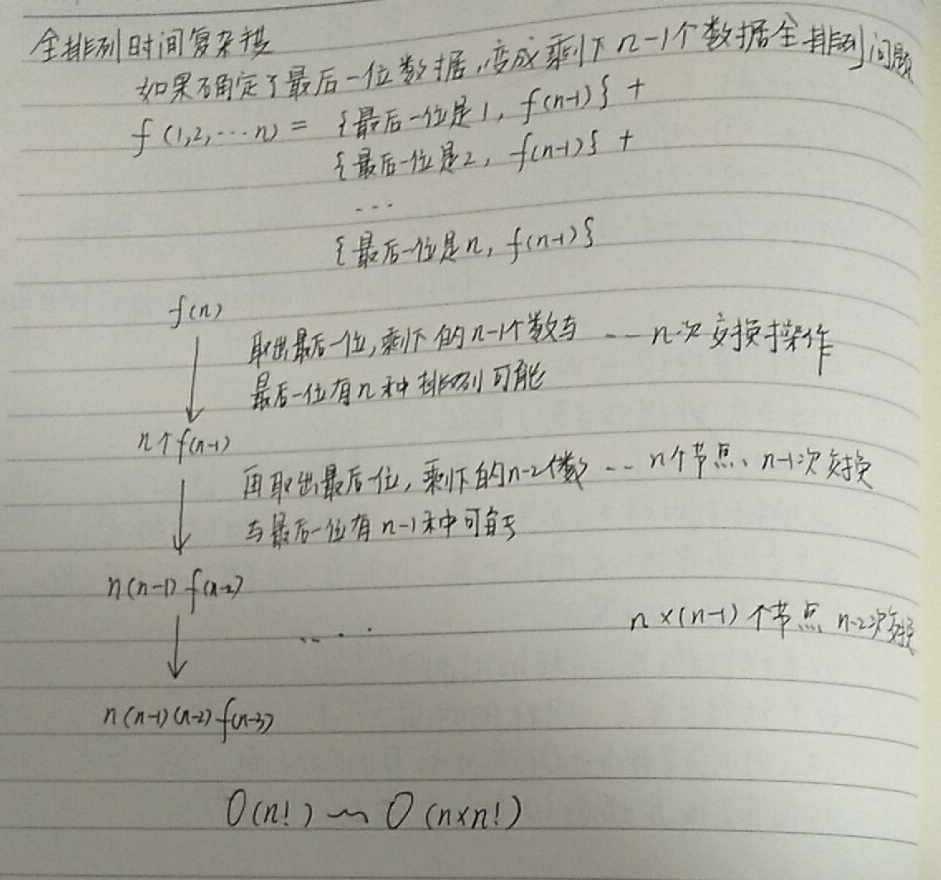 全排列时间复杂度
如果确定了最后一位数据,变成剩下n-1个数据全排列问题
f(1,2,…n) = {最后一位是1, f(n-1)} +
{最后一位是2, f(n-1)} +
...
{最后一位是n, f(n-1)}
f(n)
取出最后一位,剩下的n-1个数与 --- n次交换操作
最后一位有n种排列可能
n个f(n-1)
再取出最后一位,剩下的n-2个数 --- n个节点、n-1次交换
与最后一位有n-1种可能
n(n-1) f(n-2)
..... n×(n-1)个节点 n-2次交换
n(n-1)(n-2) f(n-3)
O(n!) ~ O(n×n!)